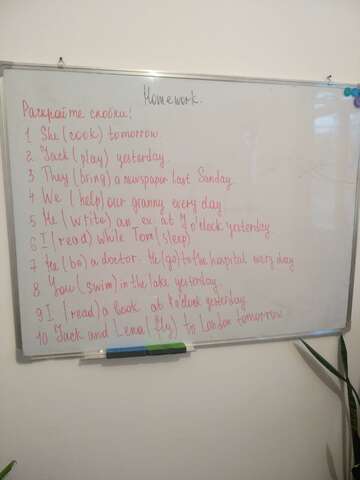 Homework.
Раскройте скобки!
1 She (cook) tomorrow
2. Jack (play) yesterday.
3 They (bring) a newspaper last Sunday.
4 We (help) our granny every day.
5 He (write) an ex. at 7 o'clock yesterday
6 I (read) while Tom (sleep)
7 He (be) a doctor. He (go) to the hospital every day
8 You (swim) in the lake yesterday.
9 I (read) a book at o'clock yesterday.
10 Jack and Lena (fly) to London tomorrow.